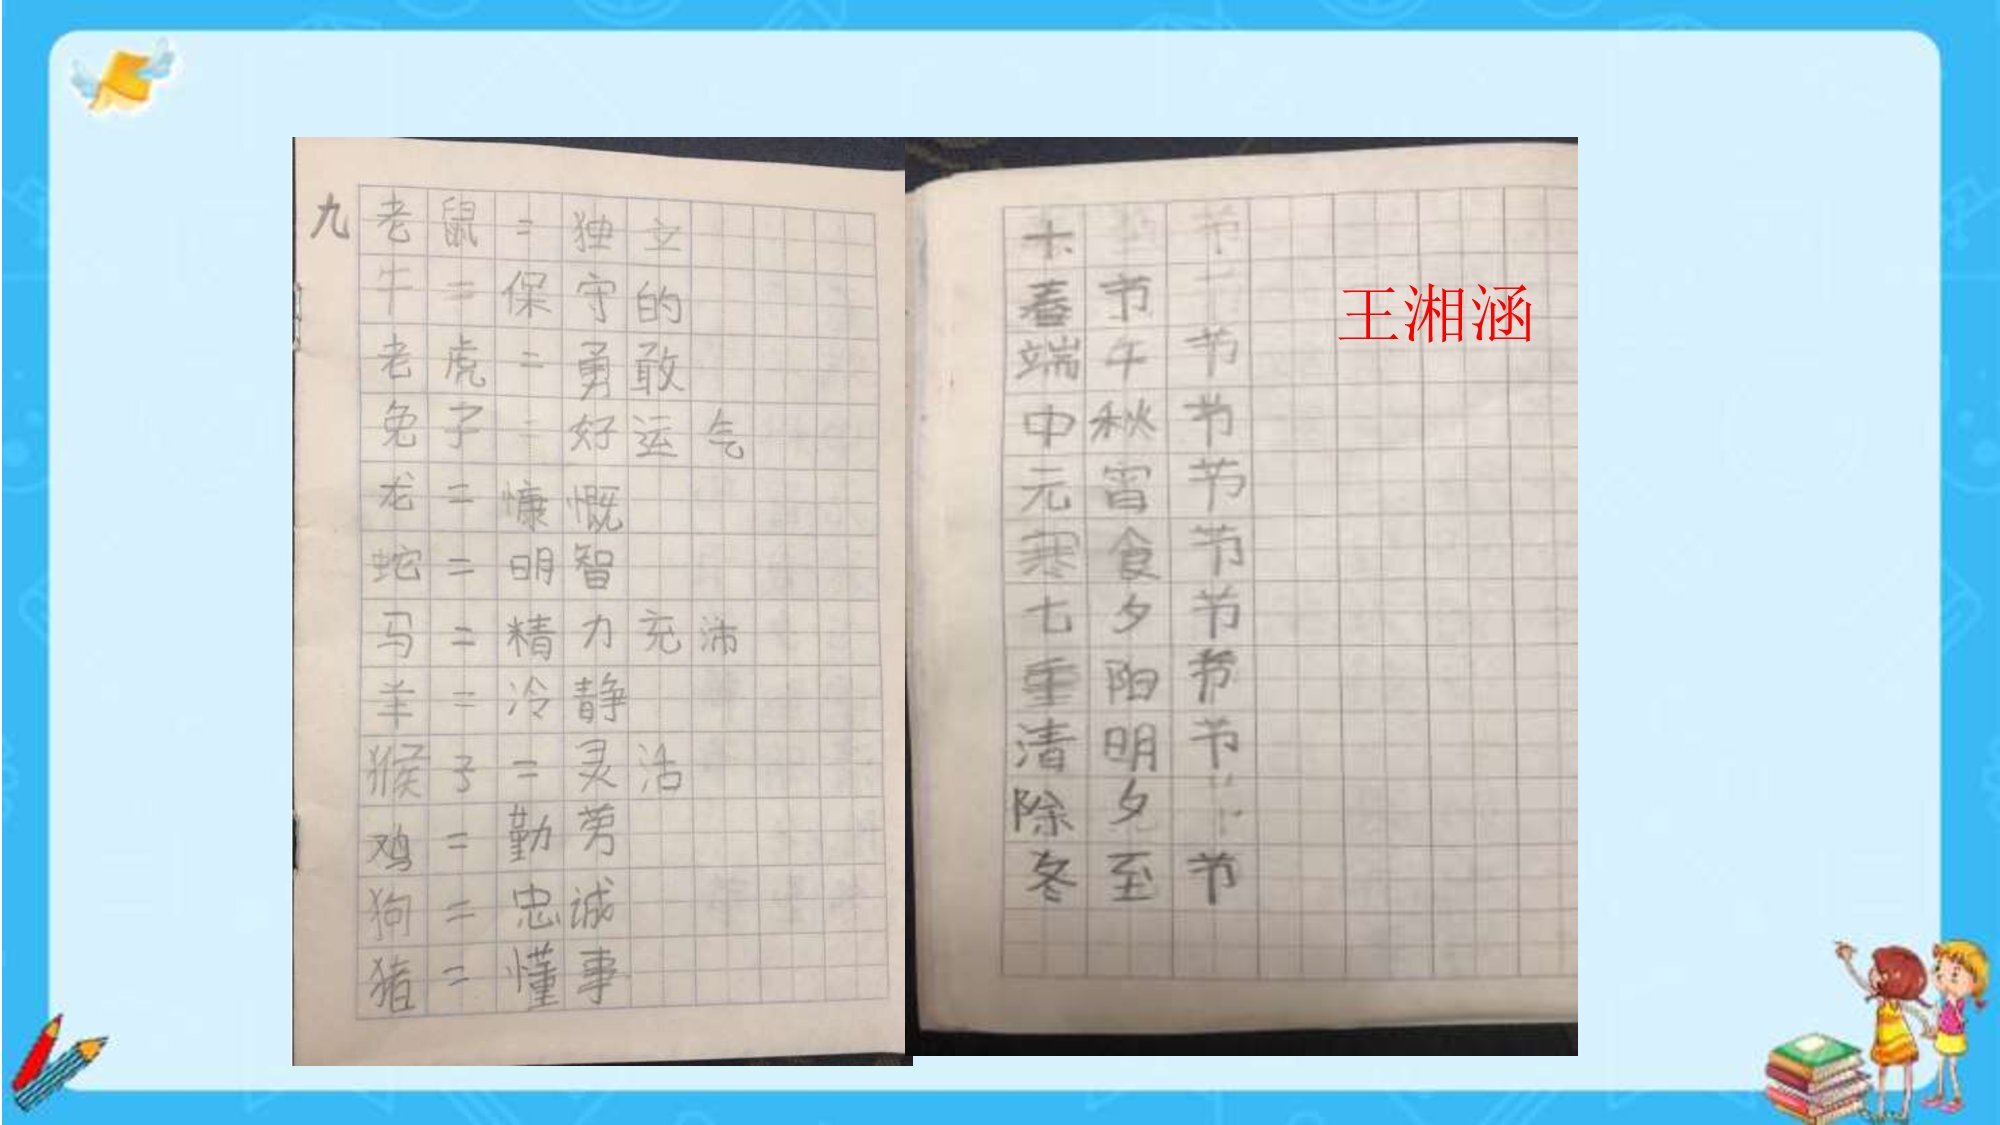 九
老鼠=独立
牛=保守的
老虎=勇敢
兔子=好运气
龙=慷慨
蛇=明智
马=精力充沛
羊=冷静
猴子=灵活
鸡=勤劳
狗=忠诚
猪=懂事
十.
春节
端午节
中秋节
元宵节
寒食节
七夕节
重阳节
清明节
除夕
冬至节
王湘涵